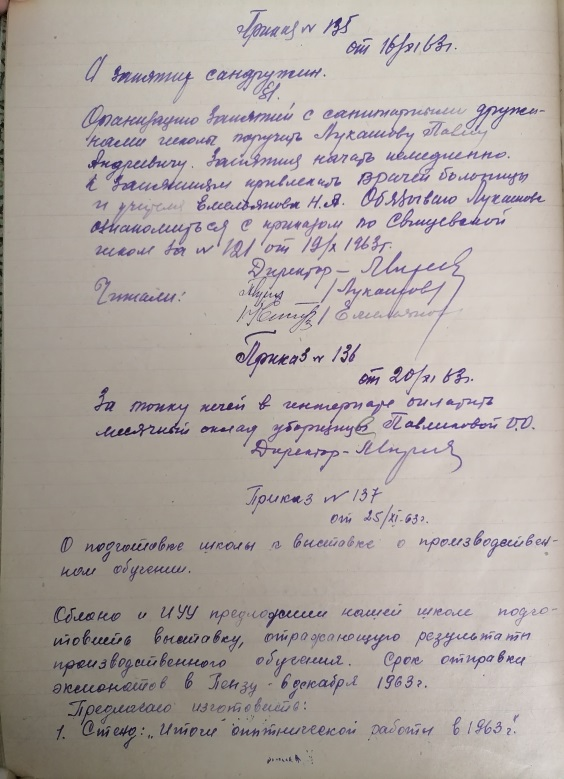 Приказ № 135
от 16/XI 63г.
О занятиях сандружин.
§1.
Организацию занятий с санитарными дружи-
нами школы поручить Лукашову Павлу
Андреевичу. Занятия начать немедленно.
К занятиям привлекать врачей больницы
и учителя Емельянова Н.А. Обязываю Лукашова
ознакомиться с приказом по Свищевской
школе за № 121 от 19/X 1963г.
Директор –
Читали: / Лукашов /
/ Емельянов
Приказ № 136
от 20/XI 63г.
За топку печей в интернате оплатить
месячный оклад уборщицы Павликовой О.О.
Директор –
Приказ № 137
от 25/XI-63г.
О подготовке школы к выставке о производствен-
ном обучении.
Облоно и ИУУ предложили нашей школе подго-
товить выставку, отражающую результаты
производственного обучения. Срок отправки
экспонатов в Пензу - 6 декабря 1963г.
Предлагаю изготовить:
1. Стенд: „Итоги опытнической работы в 1963г."